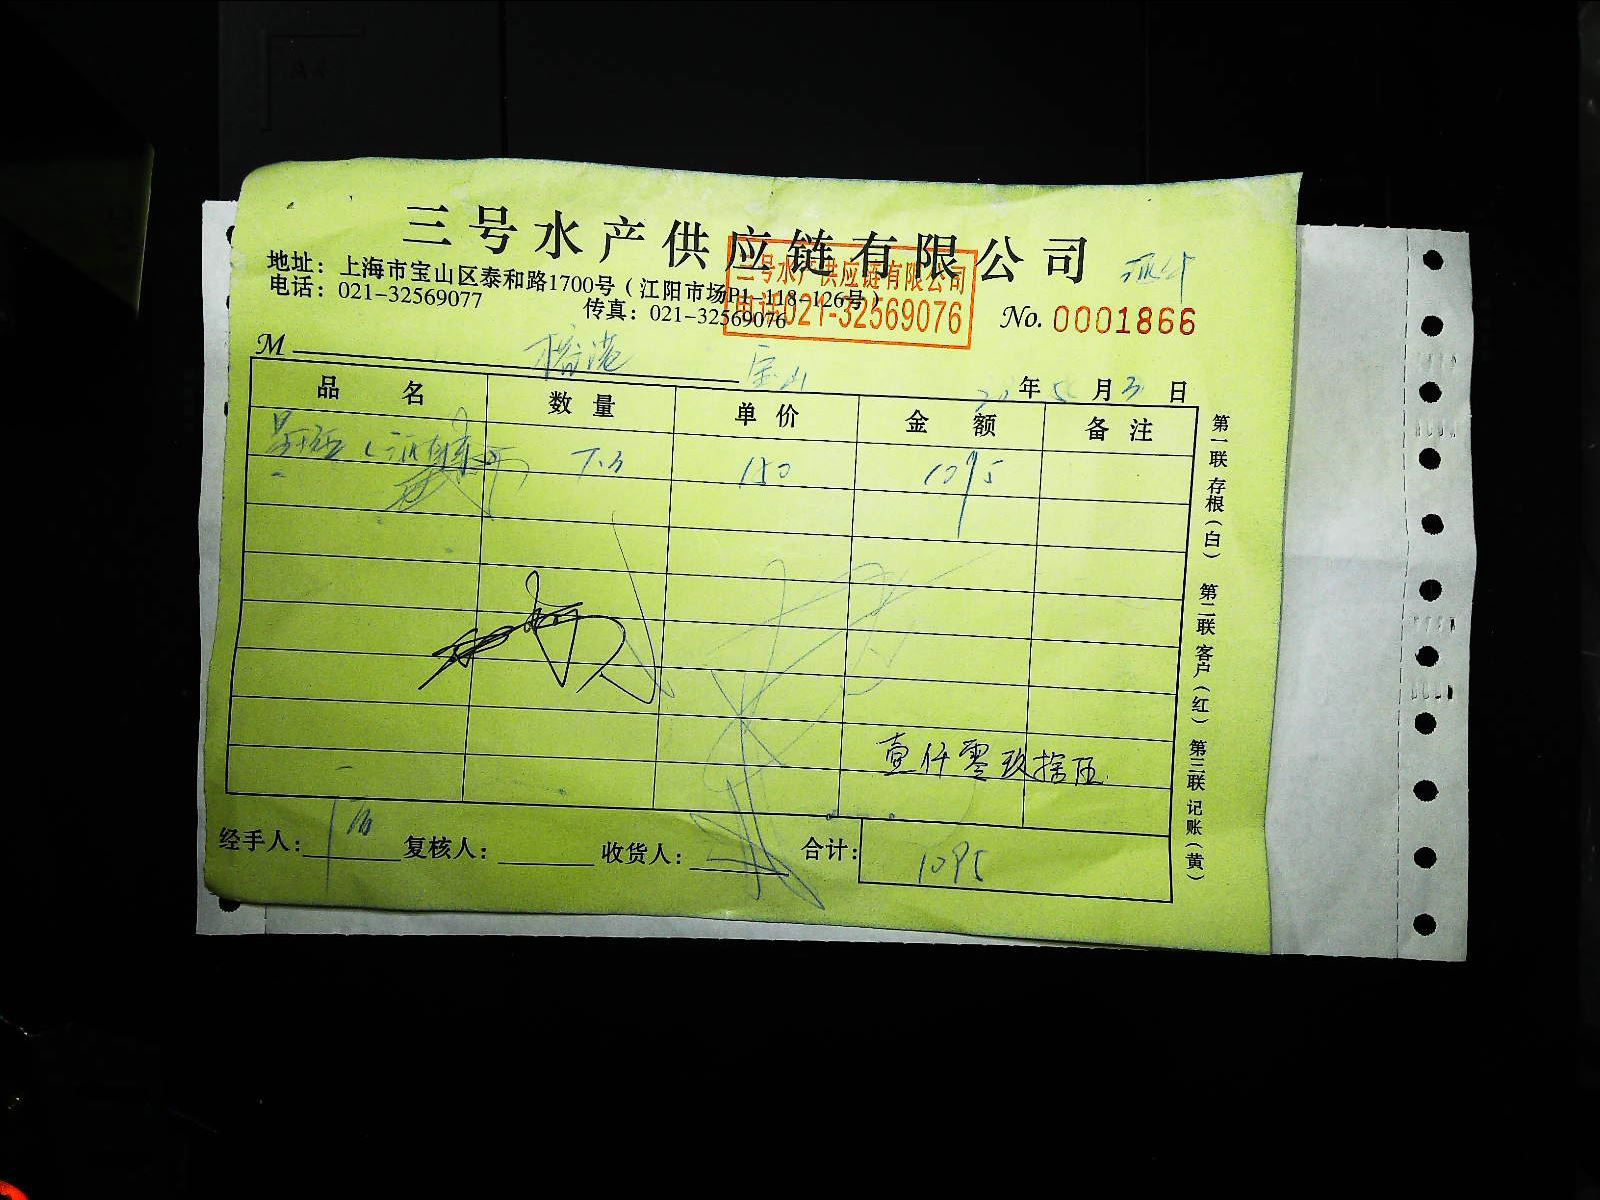 三号水产供应链有限公司
地址：上海市宝山区泰和路1700号（江阳市场P1-118-126号）
电话：021-32569077 传真：021-32569076
三号水产供应链有限公司
电话021-32569076
No. 0001866
M 榕港 宝山
年 5 月 3 日
品名 数量 单价 金额 备注
7.3 150 1095
壹仟零玖拾伍
经手人： 复核人： 收货人： 合计： 1095
第一联 存根（白） 第二联 客户（红） 第三联 记账（黄）